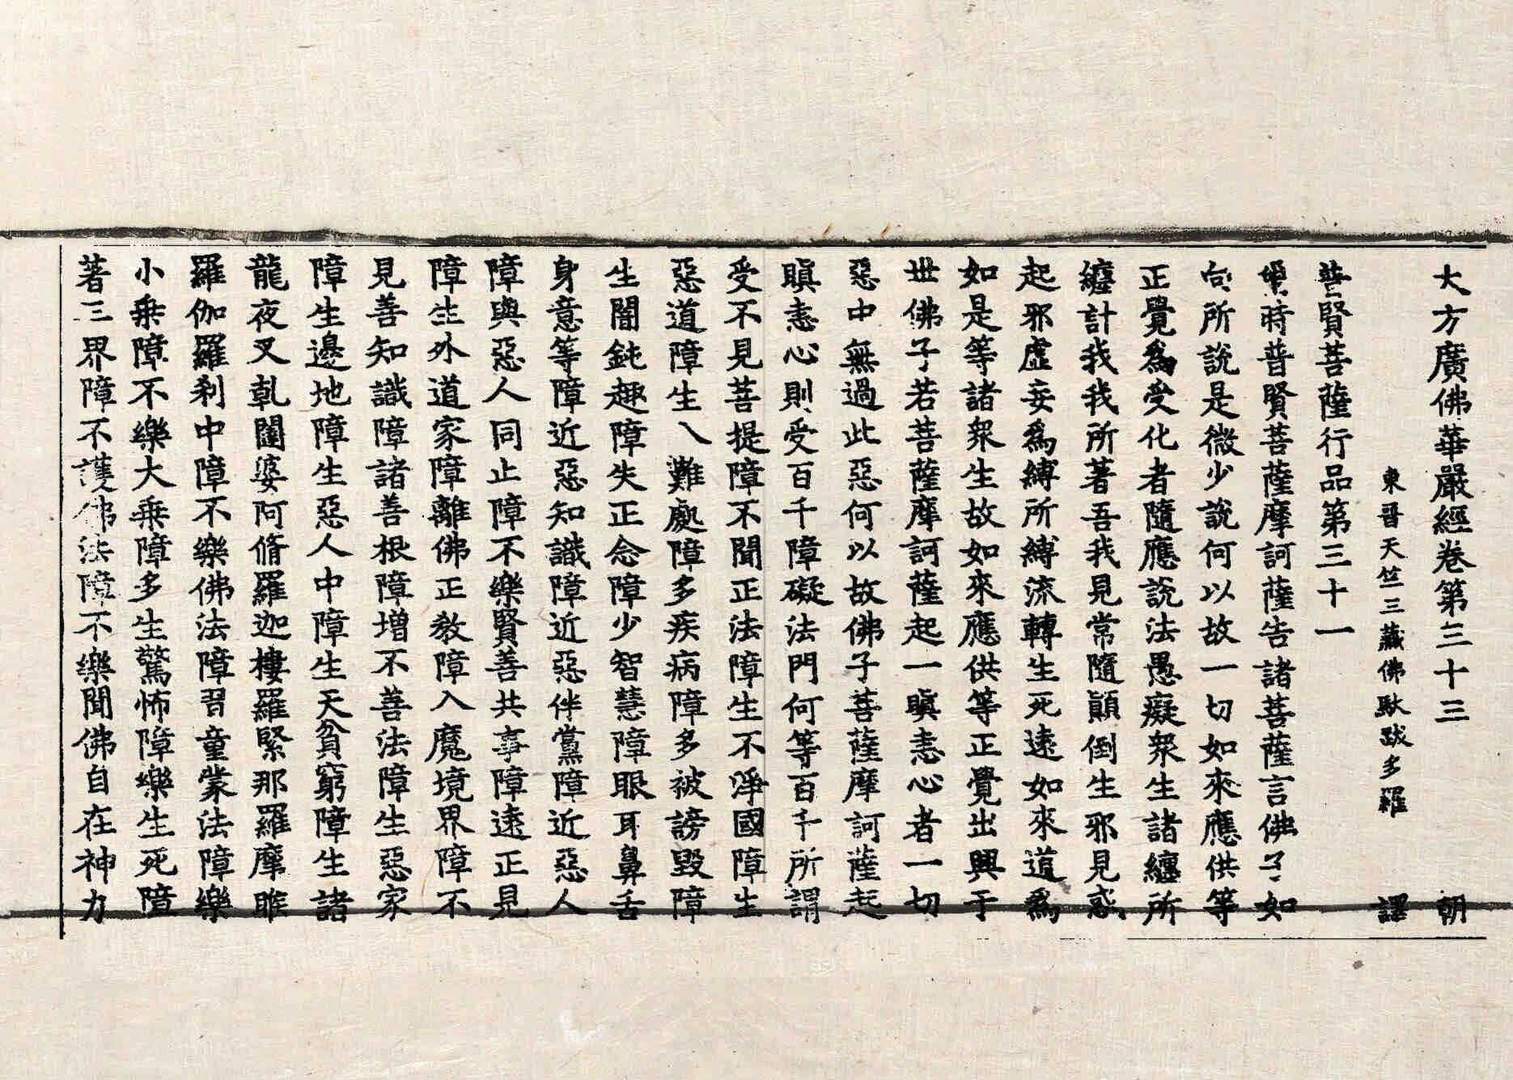 大方廣佛華嚴經卷第三十三 朝
東晉天竺三藏佛馱跋多羅 譯
普賢菩薩行品第三十一
爾時普賢菩薩摩訶薩告諸菩薩言佛子如
向所說是微少說何以故一切如來應供等
正覺爲受化者隨應說法愚癡衆生諸纏所
纏計我我所著吾我見常隨顛倒生邪見惑
起邪虛妄爲縛所縛流轉生死遠如來道爲
如是等諸衆生故如來應供等正覺出興于
世佛子若菩薩摩訶薩起一瞋恚心者一切
惡中無過此惡何以故佛子菩薩摩訶薩起
瞋恚心則受百千障礙法門何等百千所謂
受不見菩提障不聞正法障生不淨國障生
惡道障生八難處障多疾病障多被謗毀障
生闇鈍趣障失正念障少智慧障眼耳鼻舌
身意等障近惡知識障近惡伴黨障近惡人
障與惡人同止障不樂賢善共事障遠正見
障生外道家障離佛正教障入魔境界障不
見善知識障諸善根障增不善法障生惡家
障生邊地障生惡人中障生天貧窮障生諸
龍夜叉乹闥婆阿脩羅迦樓羅緊那羅摩睺
羅伽羅刹中障不樂佛法障習童蒙法障樂
小乘障不樂大乘障多生驚怖障樂生死障
著三界障不護佛法障不樂聞佛自在神力